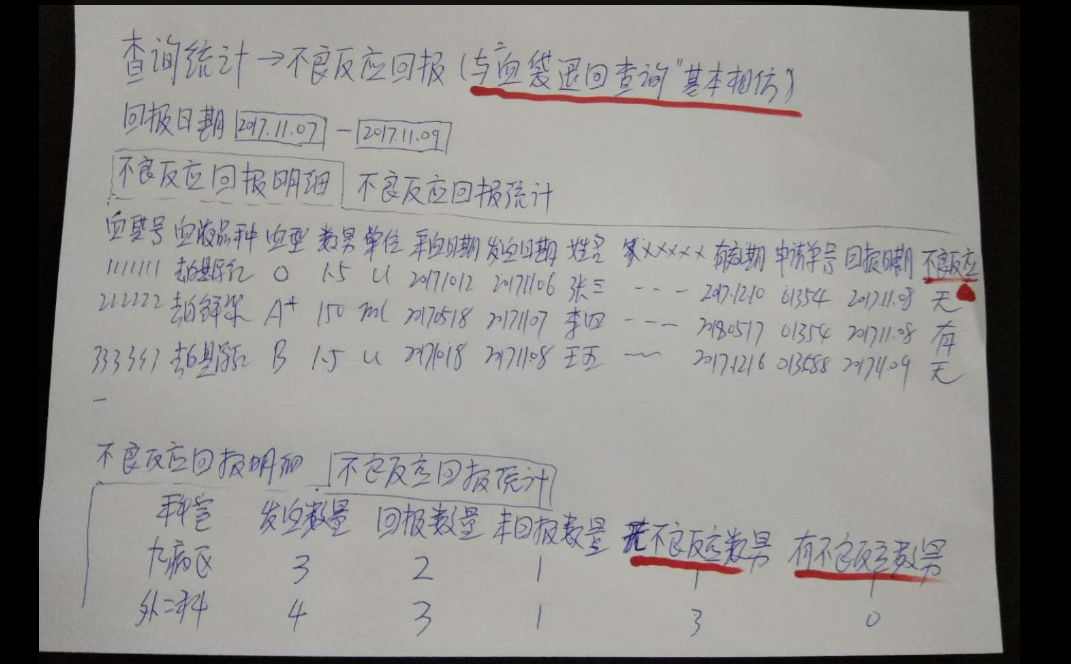 查询统计→不良反应回报(与"血袋退回查询"基本相仿)
回报日期 2017.11.07 — 2017.11.09
不良反应回报明细 不良反应回报统计
血型号 血液品种 血型 数量 单位 采血日期 发血日期 姓名 ××××× 有效期 申请单号 回报日期 不良反应
1111111 O 1.5 U 20171012 20171106 张三 --- 2017.12.10 01354 2017.11.08 无
212222 A+ 150 ml 20170518 20171107 李四 --- 20180517 01354 2017.11.08 有
333333 B 1.5 U 2017.1018 2017.11.08 王五 2017.1216 013588 2017.11.09 无
不良反应回报明细 不良反应回报统计
科室 发血数量 回报数量 未回报数量 无不良反应数量 有不良反应数量
九病区 3 2 1 1 1
外二科 4 3 1 3 0